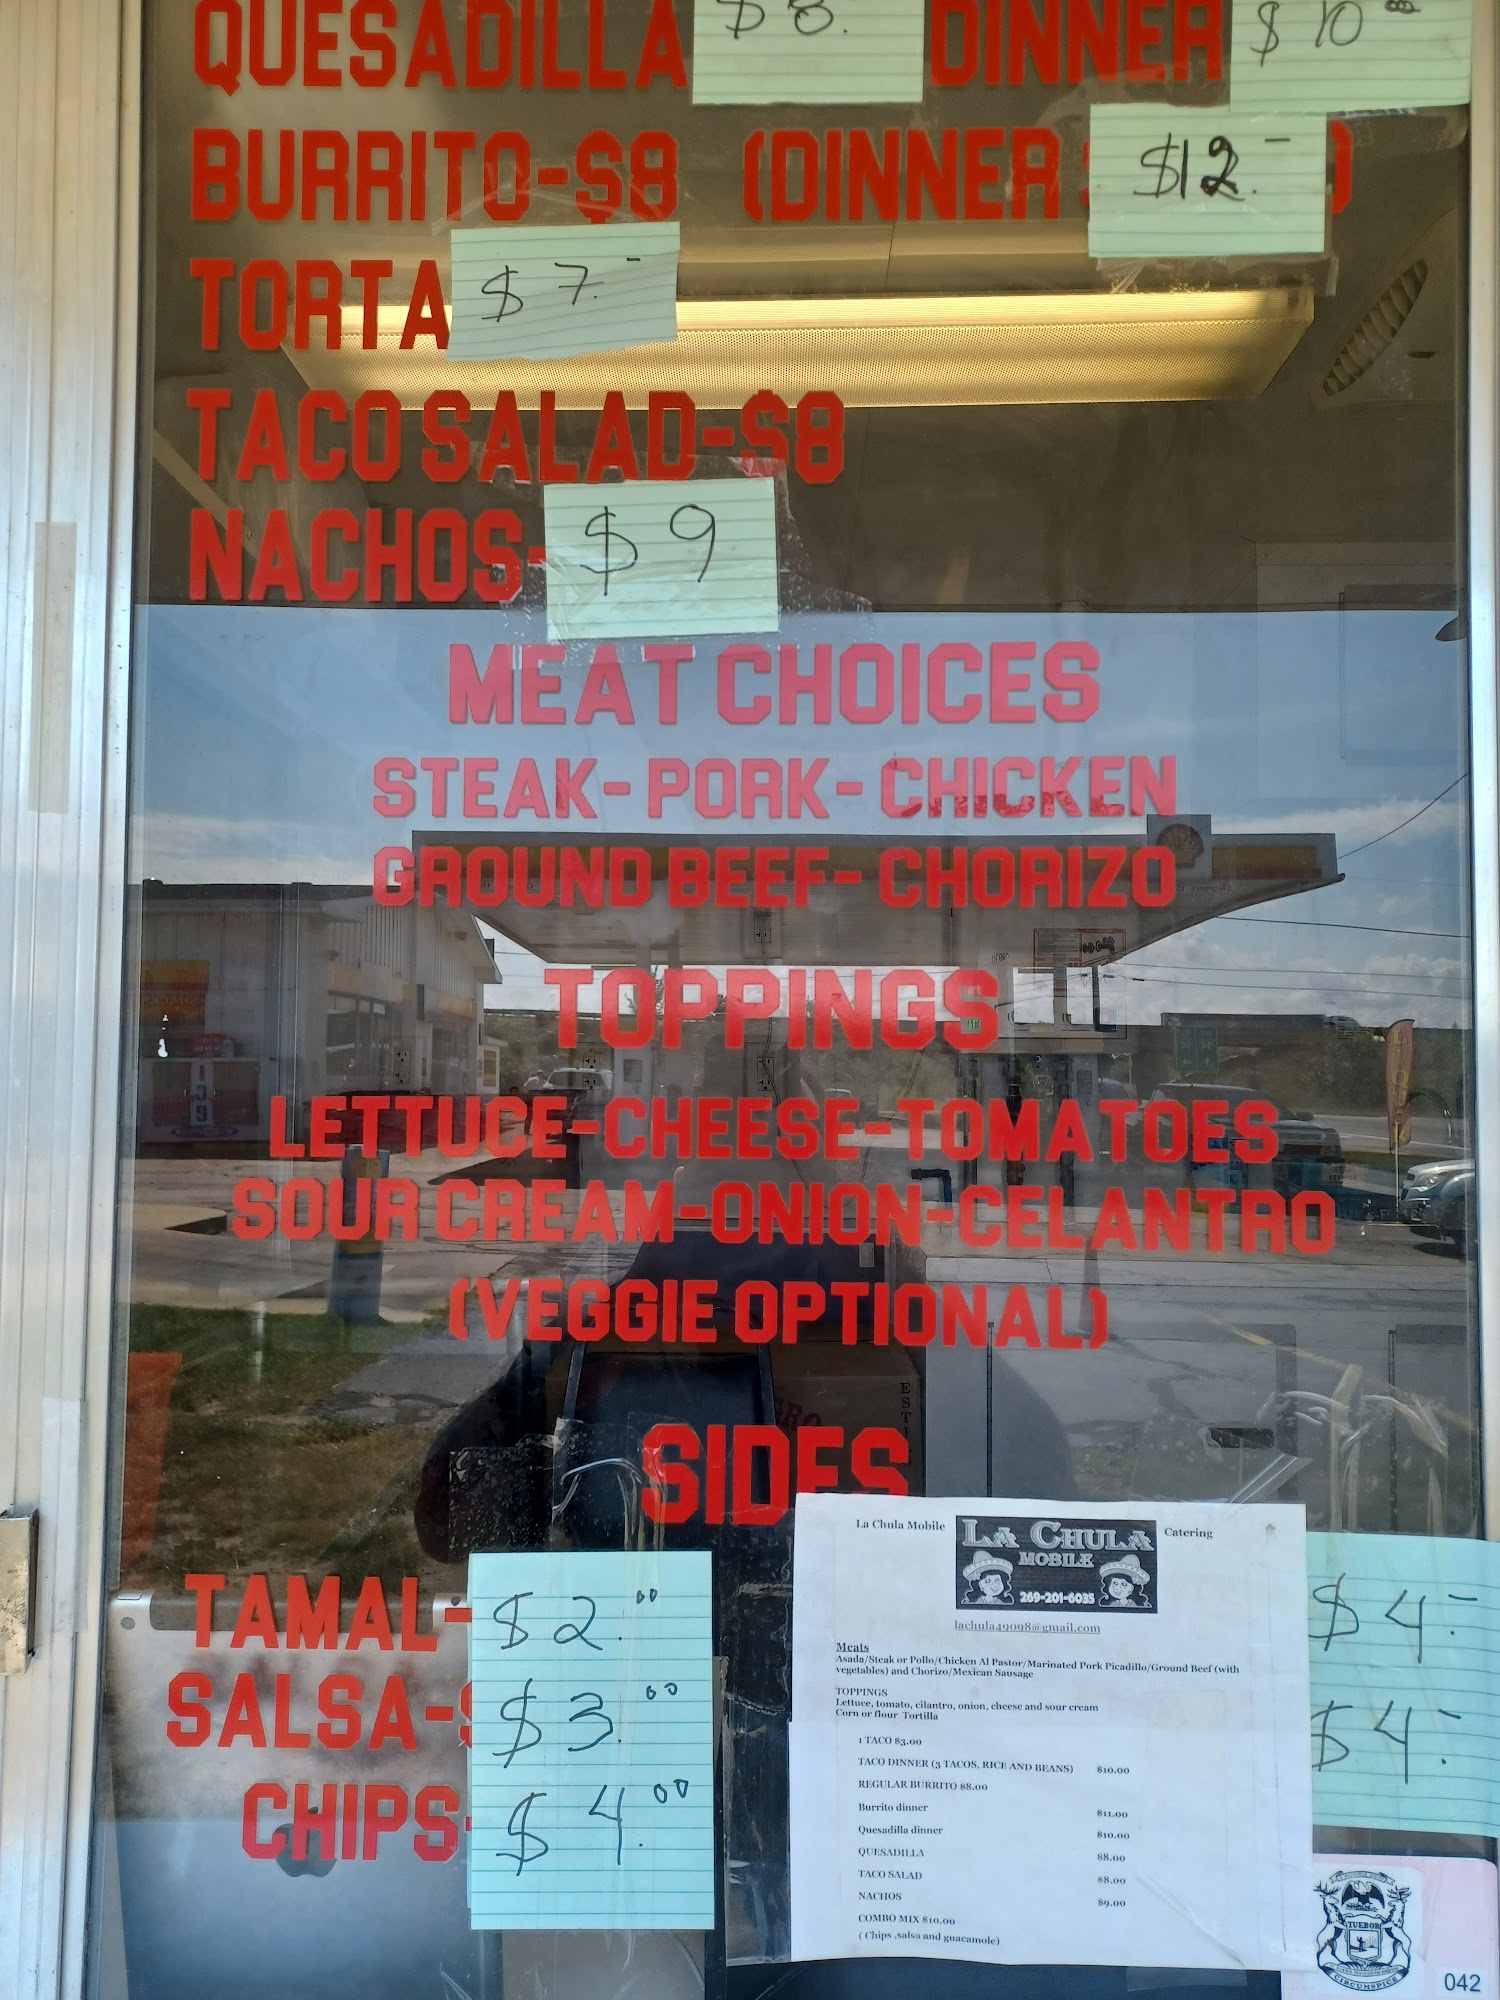 QUESADILLA $8. DINNER $10.00
BURRITO-$8 (DINNER $12.-)
TORTA $7.-
TACO SALAD-$8
NACHOS- $9
MEAT CHOICES
STEAK- PORK- CHICKEN
GROUND BEEF- CHORIZO
TOPPINGS
LETTUCE-CHEESE-TOMATOES
SOUR CREAM-ONION-CELANTRO
(VEGGIE OPTIONAL)
SIDES
TAMAL- $2.00
SALSA-$ $3.00
CHIPS- $4.00
$4.-
$4.-
La Chula Mobile LA CHULA Catering
MOBILE
269-201-6035
lachula49098@gmail.com
Meats
Asada/Steak or Pollo/Chicken Al Pastor/Marinated Pork Picadillo/Ground Beef (with
vegetables) and Chorizo/Mexican Sausage
TOPPINGS
Lettuce, tomato, cilantro, onion, cheese and sour cream
Corn or flour Tortilla
1 TACO $3.00
TACO DINNER (3 TACOS, RICE AND BEANS) $10.00
REGULAR BURRITO $8.00
Burrito dinner $11.00
Quesadilla dinner $10.00
QUESADILLA $8.00
TACO SALAD $8.00
NACHOS $9.00
COMBO MIX $10.00
( Chips ,salsa and guacamole)
TUEBOR
CIRCUMSPICE
042